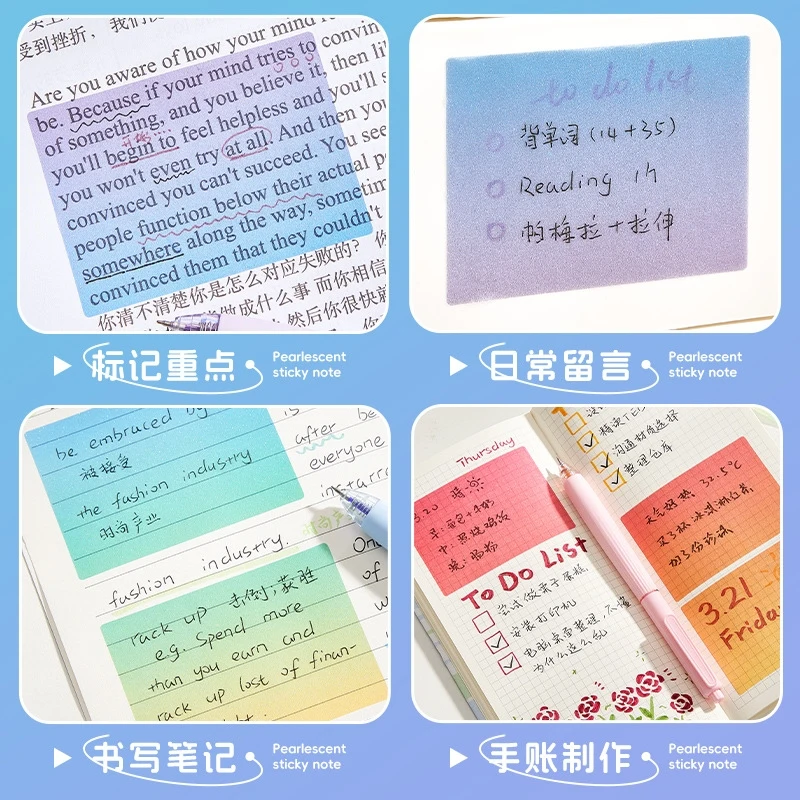 受到挫折，我们没
Are you aware of how your mind r
be. Because if your mind tries to convin
of something, and you believe it, then li
you'll begin to feel helpless and you'll s
you won't even try at all. And then you
convinced you can't succeed. You see
people function below their actual p
somewhere along the way, sometim
convinced them that they couldn't
你清不清楚你是怎么对应失败的？
做成什么事 而你相信
然后你很快就
标记重点
Pearlescent
sticky note
to do list
背单词(14+35)
Reading 1h
帕梅拉+拉伸
日常留言
Pearlescent
sticky note
be embraced by
被接受
the fashion industry
时尚产业
fashion industry.
after be
everyone
rack up 击倒,获胜
e.g. Spend more
than you earn and
rack up lost of finan-
书写笔记
Pearlescent
sticky note
Thursday
3.20 晴
To Do List
安装打印机
电脑桌面整理,不懂
为什么这么乱
沟通材质选择
整理仓库
天气好热 32.5℃
3.21
Friday
手账制作
Pearlescent
sticky note